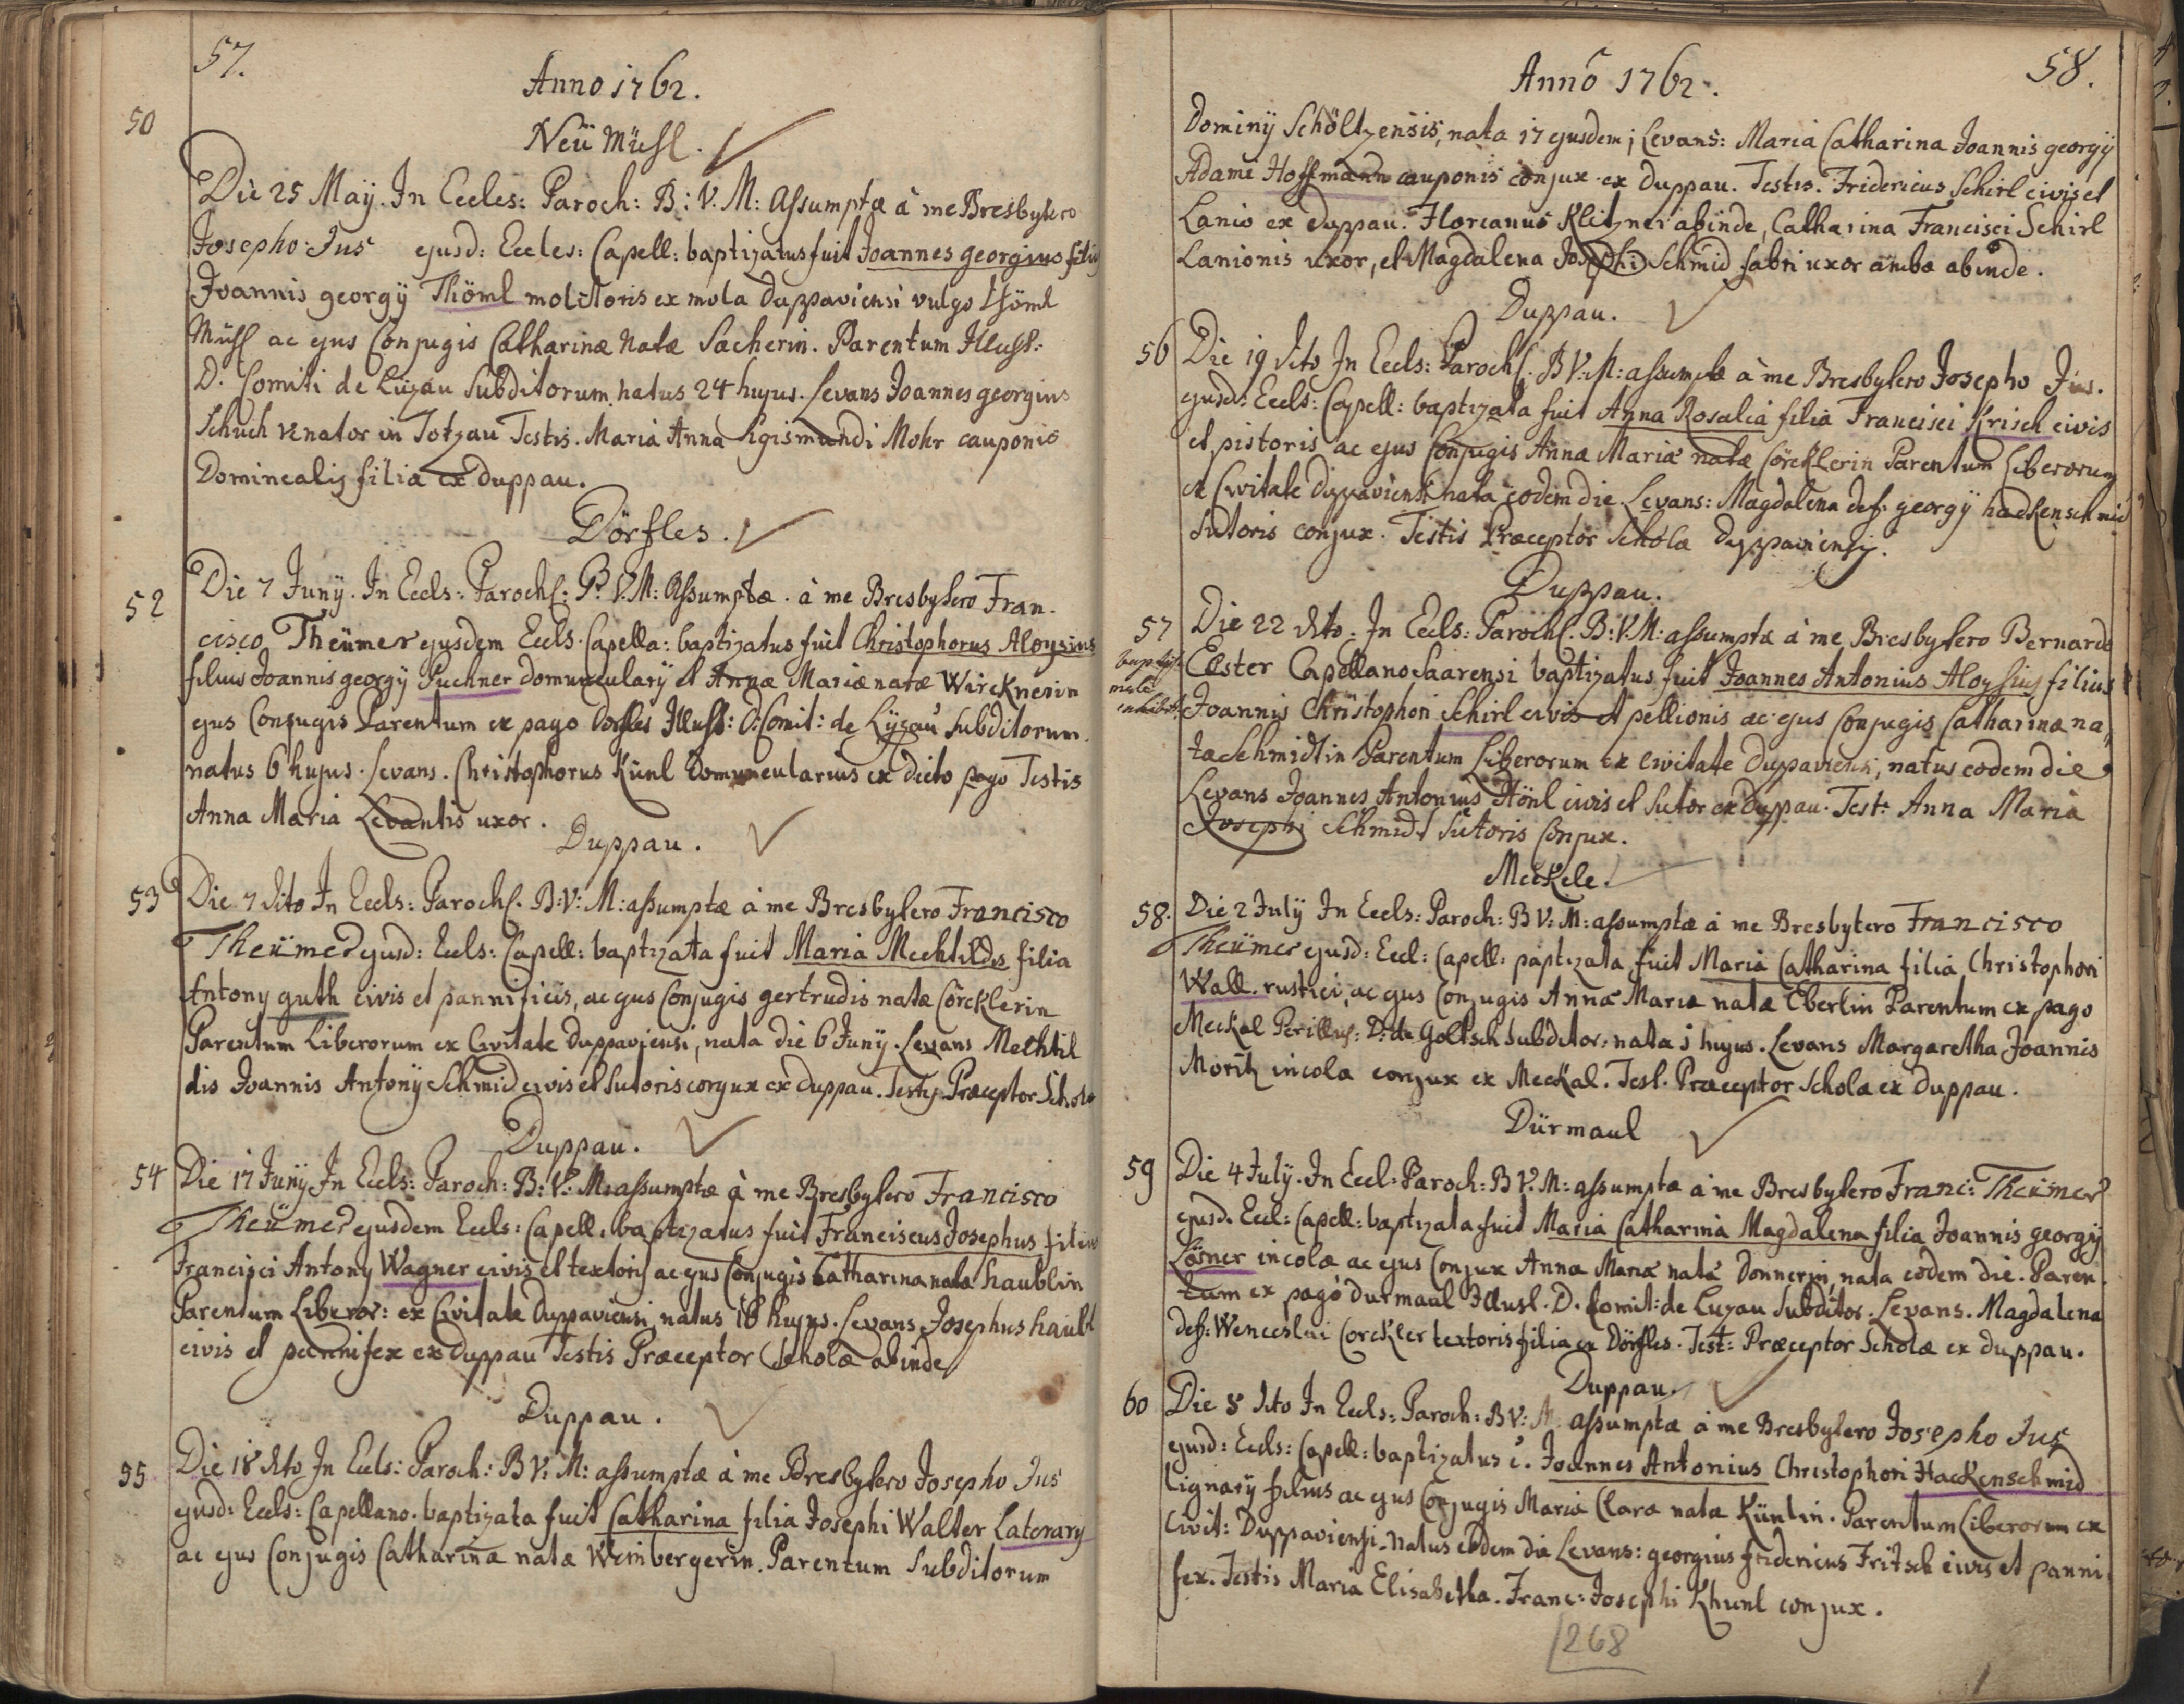 57.
Anno 1762.
50
Neü Mühl.
Die 25 Maÿ. In Eccles: Paroch: B: V. M: Assumptæ à me Presbytero
Josepho Jus ejusd: Eccles: Capell: baptizatus fuit Joannes georgius filiq
Joannis georgÿ Thöml molitoris ex mola duppaviensi vulgo thöml
Mühl ac ejus Conjugis Catharinæ Natæ Sacherin. Parentum Illust:
D. Comiti de Luzau Subditorum. natus 24 hujus. Levans Joannes georgius
Schuch venator in Totzau Testis. Maria Anna Sigismundi Mohr cauponis
Dominealis filia ex duppau.
Dörfles.
52
Die 7 Junÿ. In Eccls: Paroch: B. V. M: Assumptæ. à me Presbytero Fran-
cisco Theümer ejusdem Eccls. Capella: baptizatus fuit Christophorus Aloysius
filius Joannis georgÿ Puchner domunculary et Annæ Mariæ natæ Wircknerin
ejus Conjugis Parentum ex pago dorfles Illust: D: Comit: de Lüzau Subditorum.
natus 6 hujus. Levans. Christophorus Künl Domuncularius ex dicto pago Testis
Anna Maria Levantis uxor.
Duppau.
53
Die 7 dito In Eccls: Paroch: B: V: M: assumptæ à me Presbytero Francisco
Theümer ejusd: Eccls: Capell: baptizata fuit Maria Mechtildis filia
Antony guth civis et pannificis, ac ejus Conjugis gertrudis natæ Cörcklerin
Parentum Liberorum ex Civitate duppaviensi, nata die 6 Junÿ. Levans Mechtil
dis Joannis Antonÿ Schmid civis et Sutoris conjux ex duppau. Testis. Præceptor Scholæ
Duppau.
54
Die 17 Junÿ In Eccls: Paroch: B: V: M: assumptæ à me Presbytero Francisco
Theümer ejusdem Eccls: Capell: baptizatus fuit Franciscus Josephus filius
Francisci Antony Wagner civis et textoris ac ejus Conjugis Catharina nata haublin
Parentum Liberor: ex Civitate duppaviensi natus 16 hujus. Levans Josephus haubl
civis et pannifex ex duppau Testis Præceptor Scholæ abinde
Duppau.
55
Die 18 dito In Eccls: Paroch: B V: M: assumptæ à me Presbytero Josepho Jus
ejusd: Eccls: Capellano. baptizata fuit Catharina filia Josephi Walter Laterary
ac ejus Conjugis Catharinæ natæ Weinbergerin. Parentum Subditorum
58.
Anno 1762.
Dominÿ Schöltzensis, nata 17 ejusdem; Levans: Maria Catharina Joannis georgÿ
Adami Hoffmann cauponis conjux ex duppau. Testis. Fridericus Schirl civis et
Lanio ex duppau. Florianus Klitzner abinde, Catharina Francisci Schirl
Lanionis uxor, et Magdalena Josephi Schmid fabri uxor ambæ abinde.
Duppau.
56
Die 19 dito In Eccls: Paroch: B V: M: assumptæ à me Presbytero Josepho Jus.
ejusd: Eccls: Capell: baptizata fuit Anna Rosalia filia Francisci Krisch civis
et pistoris ac ejus Conjugis Anna Maria natæ Cörcklerin Parentum Liberorum
ex Civitate duppaviensi nata eodem die. Levans: Magdalena def: georgÿ hackenschmid
Sutoris conjux. Testis Præceptor Scholæ duppaviensis.
Duppau.
57
Die 22 dito. In Eccls: Paroch: B: V: M: assumptæ à me Presbytero Bernardo
Elster Capellano Saarensi baptizatus fuit Joannes Antonius Aloysius filius
Joannis Christophori Schirl civis et pellionis ac ejus Conjugis Catharinæ na-
tæ Schmidtin Parentum Liberorum ex civitate duppaviensi, natus eodem die
Levans Joannes Antonius Hönl civis et Sutor ex duppau. Test: Anna Maria
Josephi Schmidt Sutoris Conjux.
Meckele.
58.
Die 2 Julÿ In Eccls: Paroch: B V: M: assumptæ à me Presbytero Francisco
Theümer ejusd: Eccl: Capell: paptizata fuit Maria Catharina filia Christophori
Wall. rustici, ac ejus Conjugis Anna Maria nata Eberlin Parentum ex pago
Meckal Perillus: D: de Goltsch Subditor: nata 1 hujus. Levans Margaretha Joannis
Moritz incola conjux ex Meckal. Test. Præceptor Scholæ ex duppau.
Dürmaul
59
Die 4 Julÿ. In Eccl: Paroch: B V: M: assumptæ à me Presbytero Franc: Theümer
ejusd. Eccl: Capell: baptizata fuit Maria Catharina Magdalena filia Joannis georgÿ
Lösner incolæ ac ejus Conjux Anna Maria nata Donnerin, nata eodem die. Paren-
tum ex pago durmaul Illust. D. Comit: de Luzau Subditor. Levans. Magdalena
def: Wenceslai Corckler textoris filia ex Dörfles. Test: Præceptor Scholæ ex duppau.
Duppau.
60
Die 8 dito In Eccls: Paroch: B V: M. assumptæ à me Presbytero Josepho Jus
ejusd: Eccls: Capell: baptizatus e. Joannes Antonius Christophori Hackenschmid
Lignarÿ filius ac ejus Conjugis Maria Clara nata Künlin. Parentum Liberorum ex
Civit: Duppaviensi. natus eodem die Levans: georgius fridericus Fritsch civis et panni-
fex. Testis Maria Elisabetha. Franc: Josephi Khunl conjux.
268